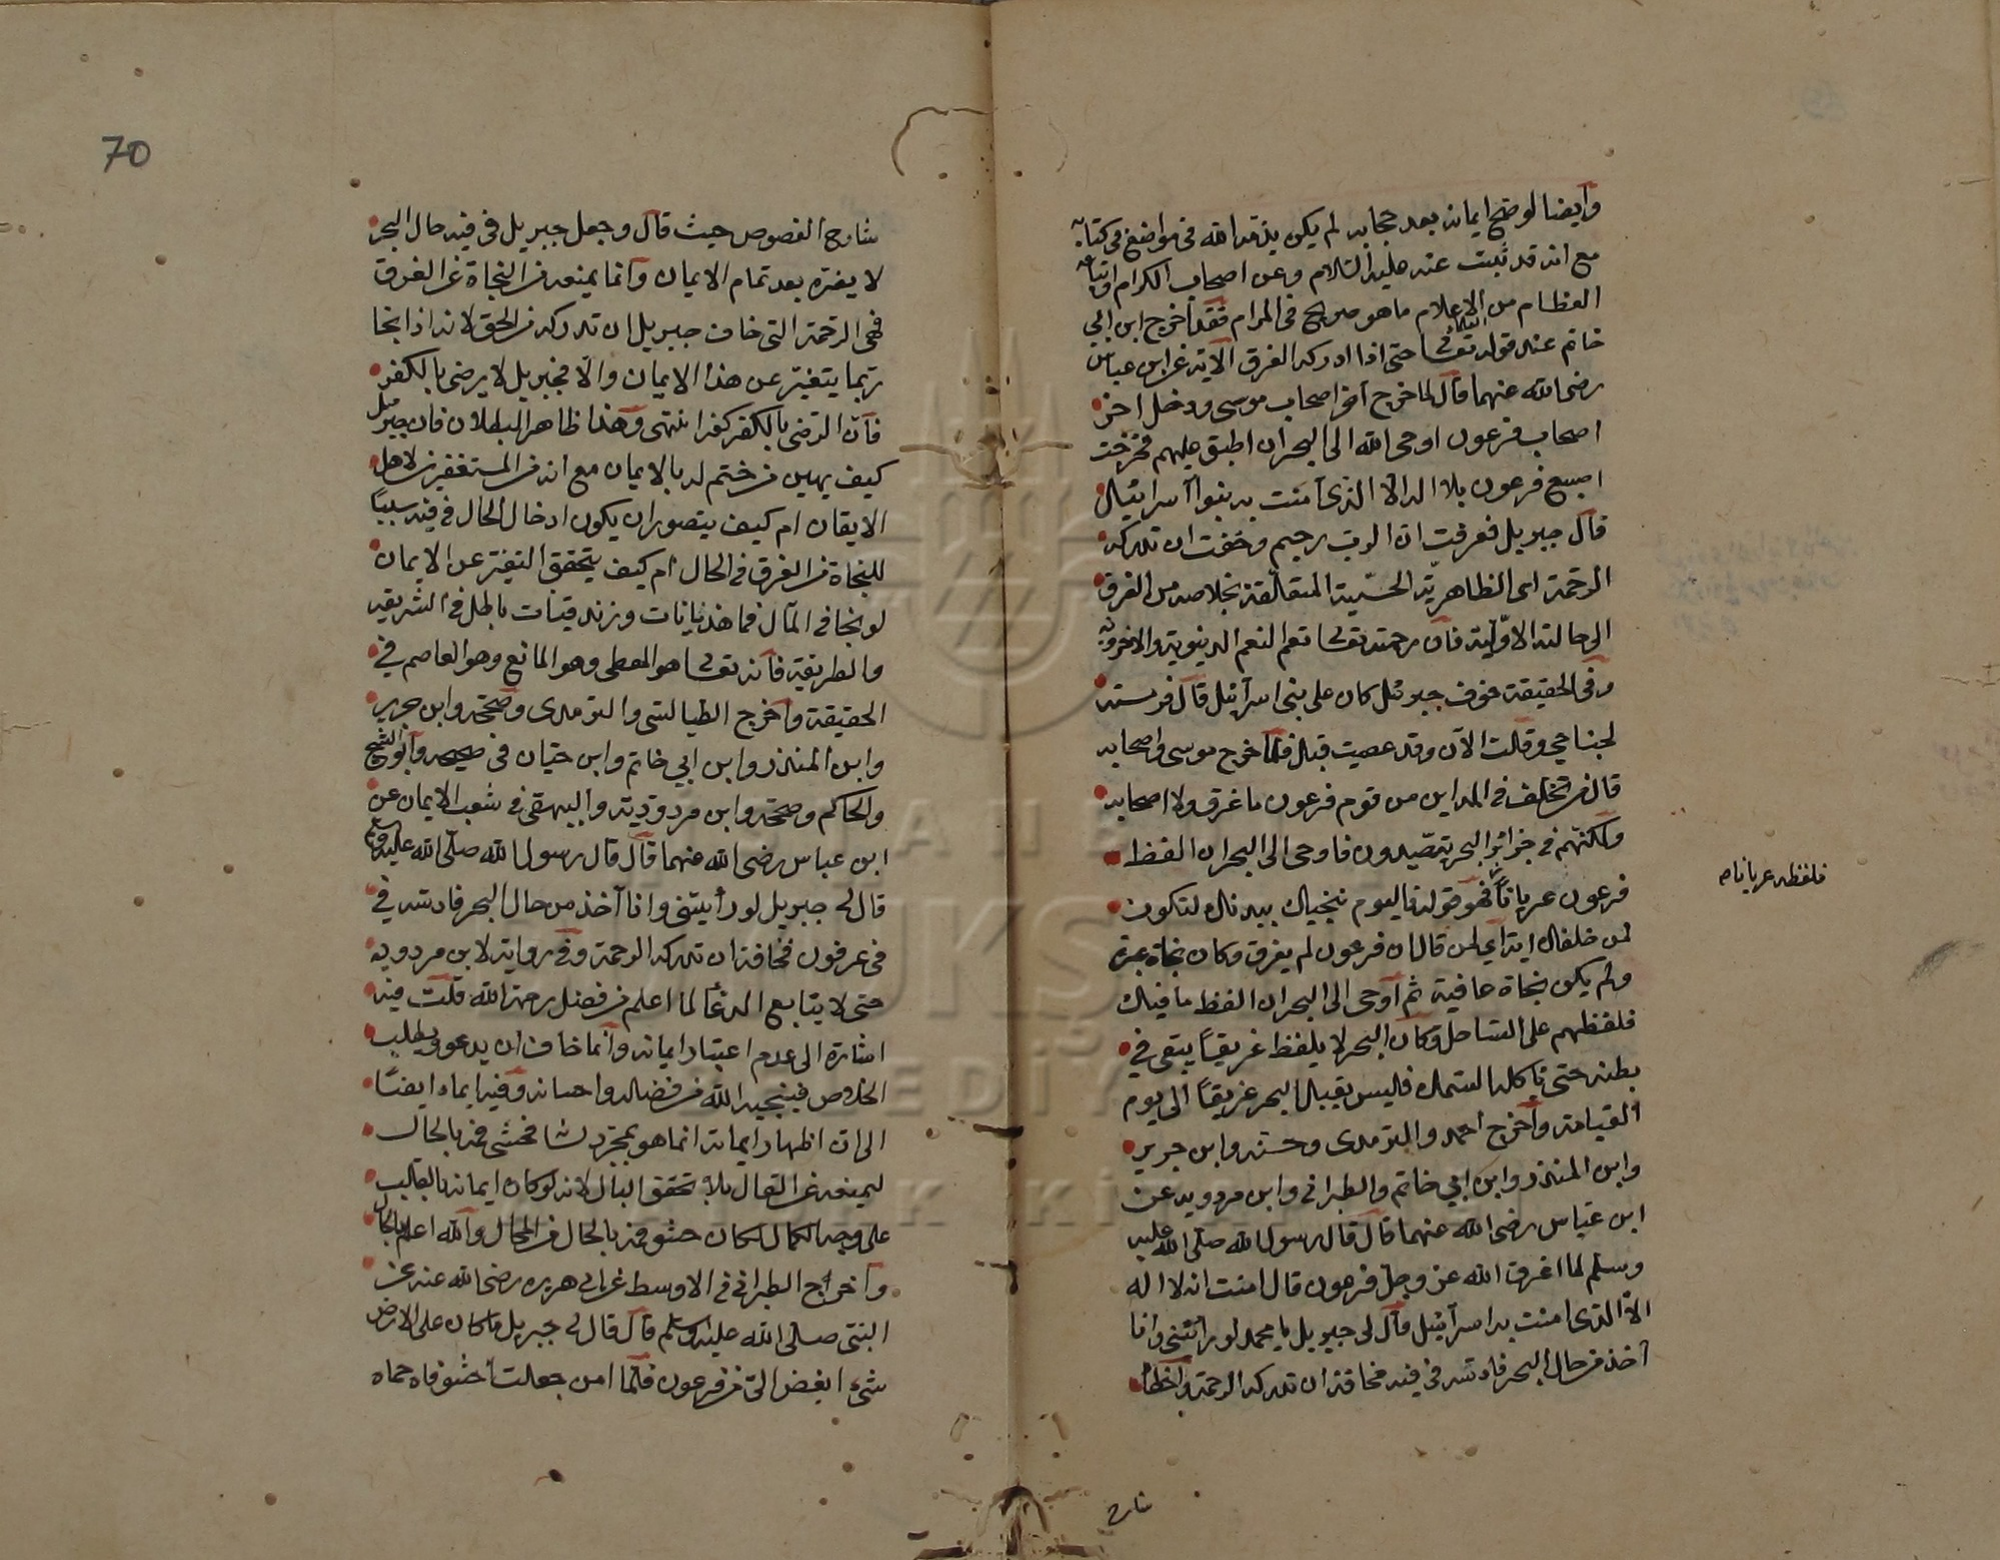 وأيضا لو صح ايمانه بعد حجابه لم يكن يذمه الله فى مواضع فى كتابه
مع انه قد ثبت عنه عليه السلام وعن اصحابه الكرام واتباعه
العظام من الاعلام ما هو صريح فى المرام فقد أخرج ابن ابي
حاتم عند قوله تعالى حتى اذا ادركه الغرق الآية عن ابن عباس
رضى الله عنهما قال لما خرج آخر اصحاب موسى ودخل آخر
اصحاب فرعون اوحى الله الى البحر ان اطبق عليهم فخرجت
اصبع فرعون بلا اله الا الذى آمنت به بنوا اسرائيل
قال جبريل فعرفت ان الرب رحيم وخفت ان تدركه
الرحمة اى الظاهرية الحسية المتعلقة بخلاصه من الغرق
الى حالته الاولية فان رحمته تعالى تعم النعم الدنيوية والاخروية
وفى الحقيقة خوف جبرئيل كان على بنى اسرآئيل قال فرمسته
بجناحي وقلت الآن وقد عصيت قبل فلما خرج موسى واصحابه
قال من تخلف فى المداين من قوم فرعون ما غرق ولا اصحابه
ولكنهم فى جزائر البحر يتصيدون فاوحى الى البحر ان الفظ
فرعون عريانا فهو قوله فاليوم ننجيك ببدنك لتكون
لمن خلفك آية اي لمن قال ان فرعون لم يغرق وكان نجاة عبرة
ولم يكن نجاة عافية ثم أوحى الى البحر ان الفظ ما فيك
فلفظهم على الساحل وكان البحر لا يلفظ غريقا يبقى في
بطنه حتى تأكله السمك فليس يقبل البحر غريقا الى يوم
القيامة وأخرج احمد والترمدى وحسنه وابن جرير
وابن المنذر وابن ابي حاتم والطبرانى وابن مردويه عن
ابن عباس رضى الله عنهما قال قال رسول الله صلى الله عليه
وسلم لما اغرق الله عز وجل فرعون قال امنت انه لا اله
الا الذى امنت به اسرآئيل قال لى جبريل يا محمد لو رأيتنى وانا
آخذ من حال البحر فادسه فى فيه مخافة ان تدركه الرحمة واخطأ
فلفظه عريانا م
شارح
70
شارح الفصوص حيث قال وجعل جبريل فى فيه حال البحر
لا يضره بعد تمام الايمان وانما يمنعه من النجاة عن الغرق
فهى الرحمة التى خاف جبريل ان تدركه من الحق لانه اذا نجا
ربما يتغير عن هذا الايمان والا فجبريل لا يرضى بالكفر
فان الرضى بالكفر كفر انتهى وهذا ظاهر البطلان فان جبريل
كيف يهين من ختم له بالايمان مع انه من المستغفرين لاهل
الايقان ام كيف يتصور ان يكون ادخال الحال فى فيه سببا
للنجاة من الغرق فى الحال أم كيف يتحقق التغير عن الايمان
لو نجا فى المآل فما هذيانات وزندقيات باطل فى الشريقه
والطريقة فانه تعالى هو المعطى وهو المانع وهو العاصم في
الحقيقة وأخرج الطيالسى والترمدى وصححه وابن جرير
وابن المنذر وابن ابي حاتم وابن حبان فى صحيحه وأبو الشيخ
والحاكم وصححه وابن مردوديه والبيهقى فى شعب الايمان عن
ابن عباس رضى الله عنهما قال قال رسول الله صلى الله عليه وسلم
قال لى جبريل لو رأيتنى وانا آخذ من حال البحر فادسه في
فى عرفون مخافة ان تدركه الرحمة وفى رواية لابن مردويه
حتى لا يتابع الدعا لما اعلم من فضل رحمة الله قلت فيه
اشارة الى عدم اعتبار ايمانه وانما خاف ان يدعو ويطلب
الخلاص فينجيه الله من فضله واحسانه وفيه ايماء ايضا
الى ان اظهار ايمانه انما هو بمجرد لسا فحشى فمه بالحال
ليمنعه عن القال بلا تحقق البال لانه لو كان ايمانه بالقلب
على وجه الكمال لكان حشو فمه بالحال من المحال والله اعلم بالحال
وأخرج الطبرانى فى الاوسط عن ابى هريره رضى الله عنه عن
النبى صلى الله عليه وسلم قال قال لى جبريل ما كان على الارض
شئ ابغض الى من فرعون فلما امن جعلت أحشو فاه حماه